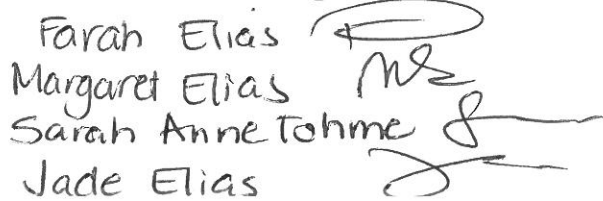 Farah Elias
Margaret Elias
Sarah Anne Tohme
Jade Elias